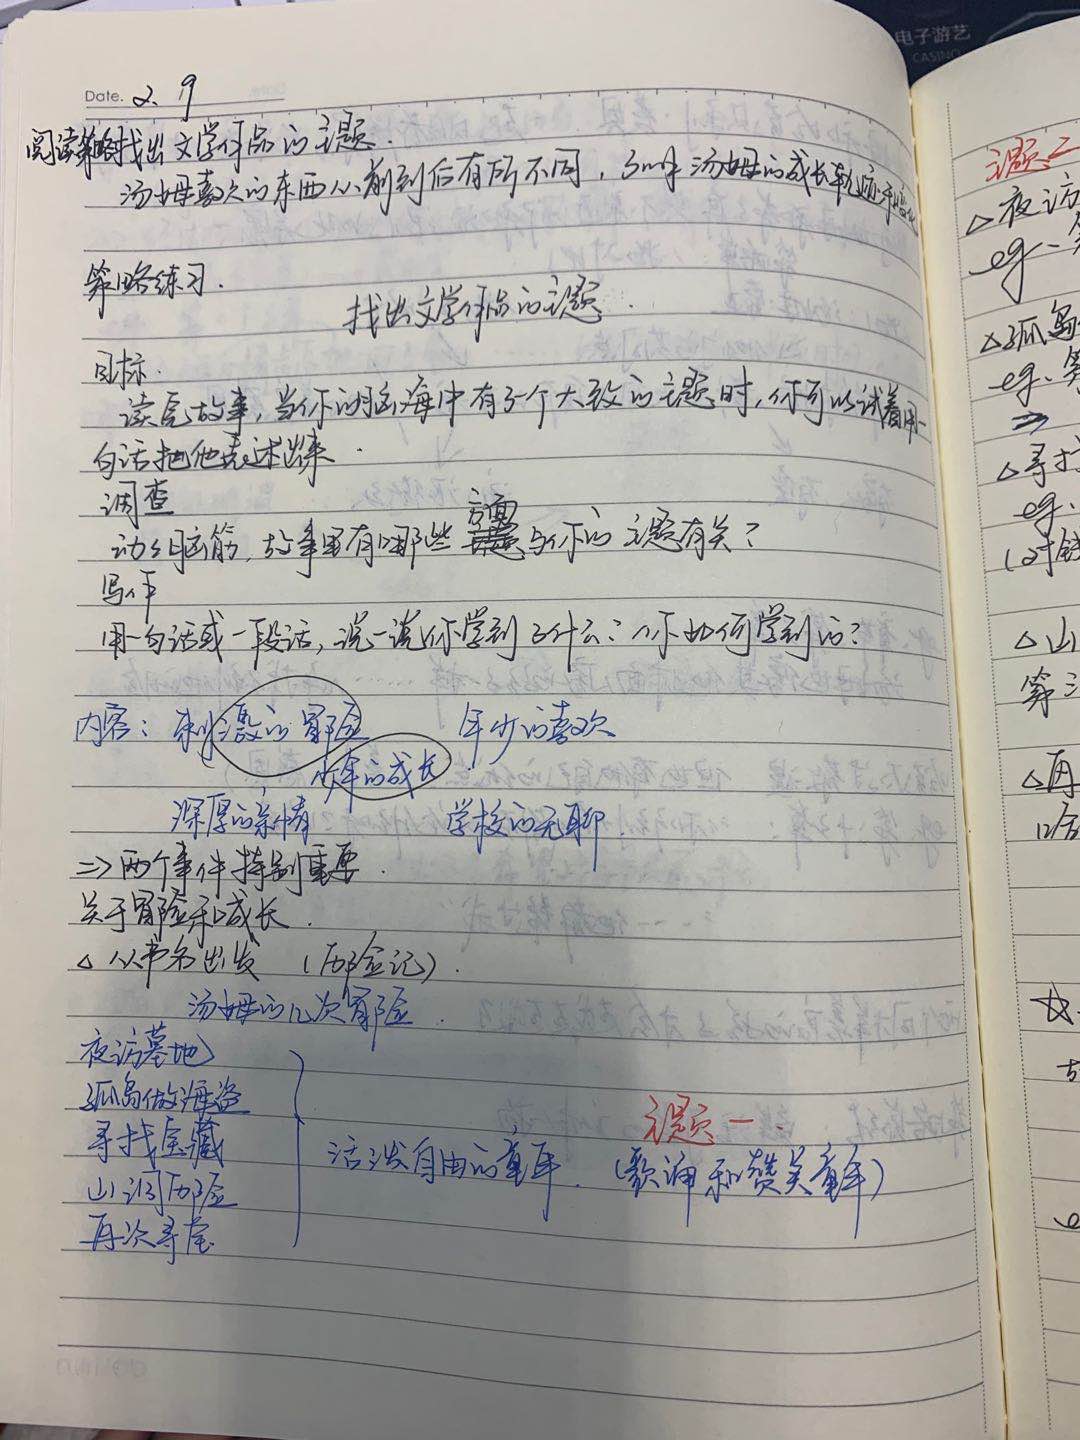 电子游艺
CASINO
Date. 2. 9
阅读策略找出文学作品的主题.
汤姆喜欢的东西从前到后有所不同,了解汤姆的成长轨迹
策略练习.
找出文学作品的主题.
目标.
读完故事,当你的脑海中有了个大致的主题时,你可以试着用一
句话把他表述出来.
调查
动动脑筋,故事里有哪些方面与你的主题有关?
写作
用一句话或一段话,说一说你学到了什么?你如何学到的?
内容: 刺激的冒险 年少的喜欢
少年的成长
深厚的亲情 学校的无聊.
=> 两个事件特别重要.
关于冒险和成长.
△ 从书名出发 (历险记).
汤姆的几次冒险.
夜访墓地
孤岛做海盗
寻找宝藏
山洞历险
再次寻宝
活泼自由的童年.
主题一.
(歌诵和赞美童年)
主题二
△夜访
eg.
△孤岛
eg.
△寻找
eg.
△山
第三
△再